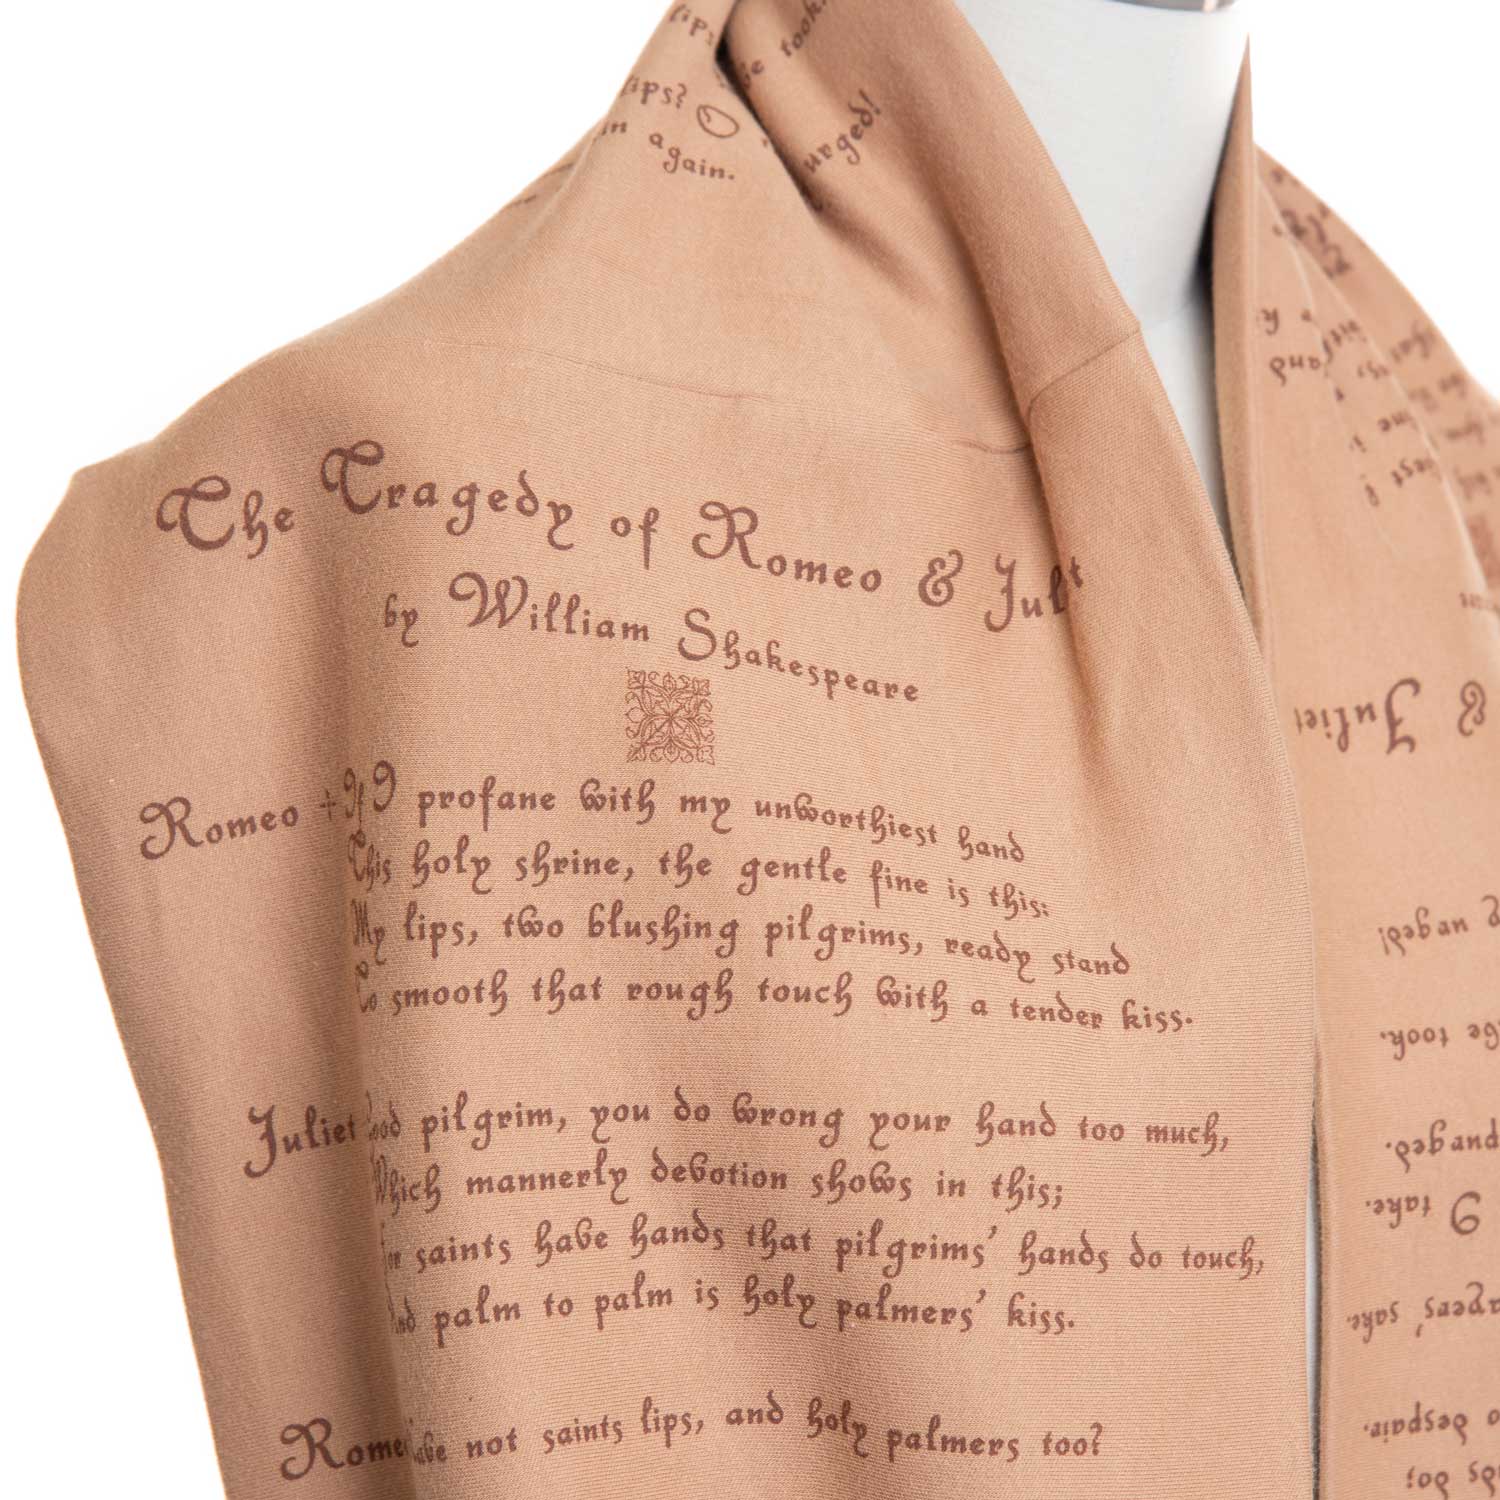 lips
lips?
in again.
be took.
urged!
The Tragedy of Romeo & Jul
by William Shakespeare
Romeo + If I profane with my unworthiest hand
This holy shrine, the gentle fine is this:
My lips, two blushing pilgrims, ready stand
To smooth that rough touch with a tender kiss.
Juliet Good pilgrim, you do wrong your hand too much,
Which mannerly devotion shows in this;
For saints have hands that pilgrims' hands do touch,
And palm to palm is holy palmers' kiss.
Rome Have not saints lips, and holy palmers too?
and
& Juliet
urged!
took.
I take.
sake.
despair.
do;